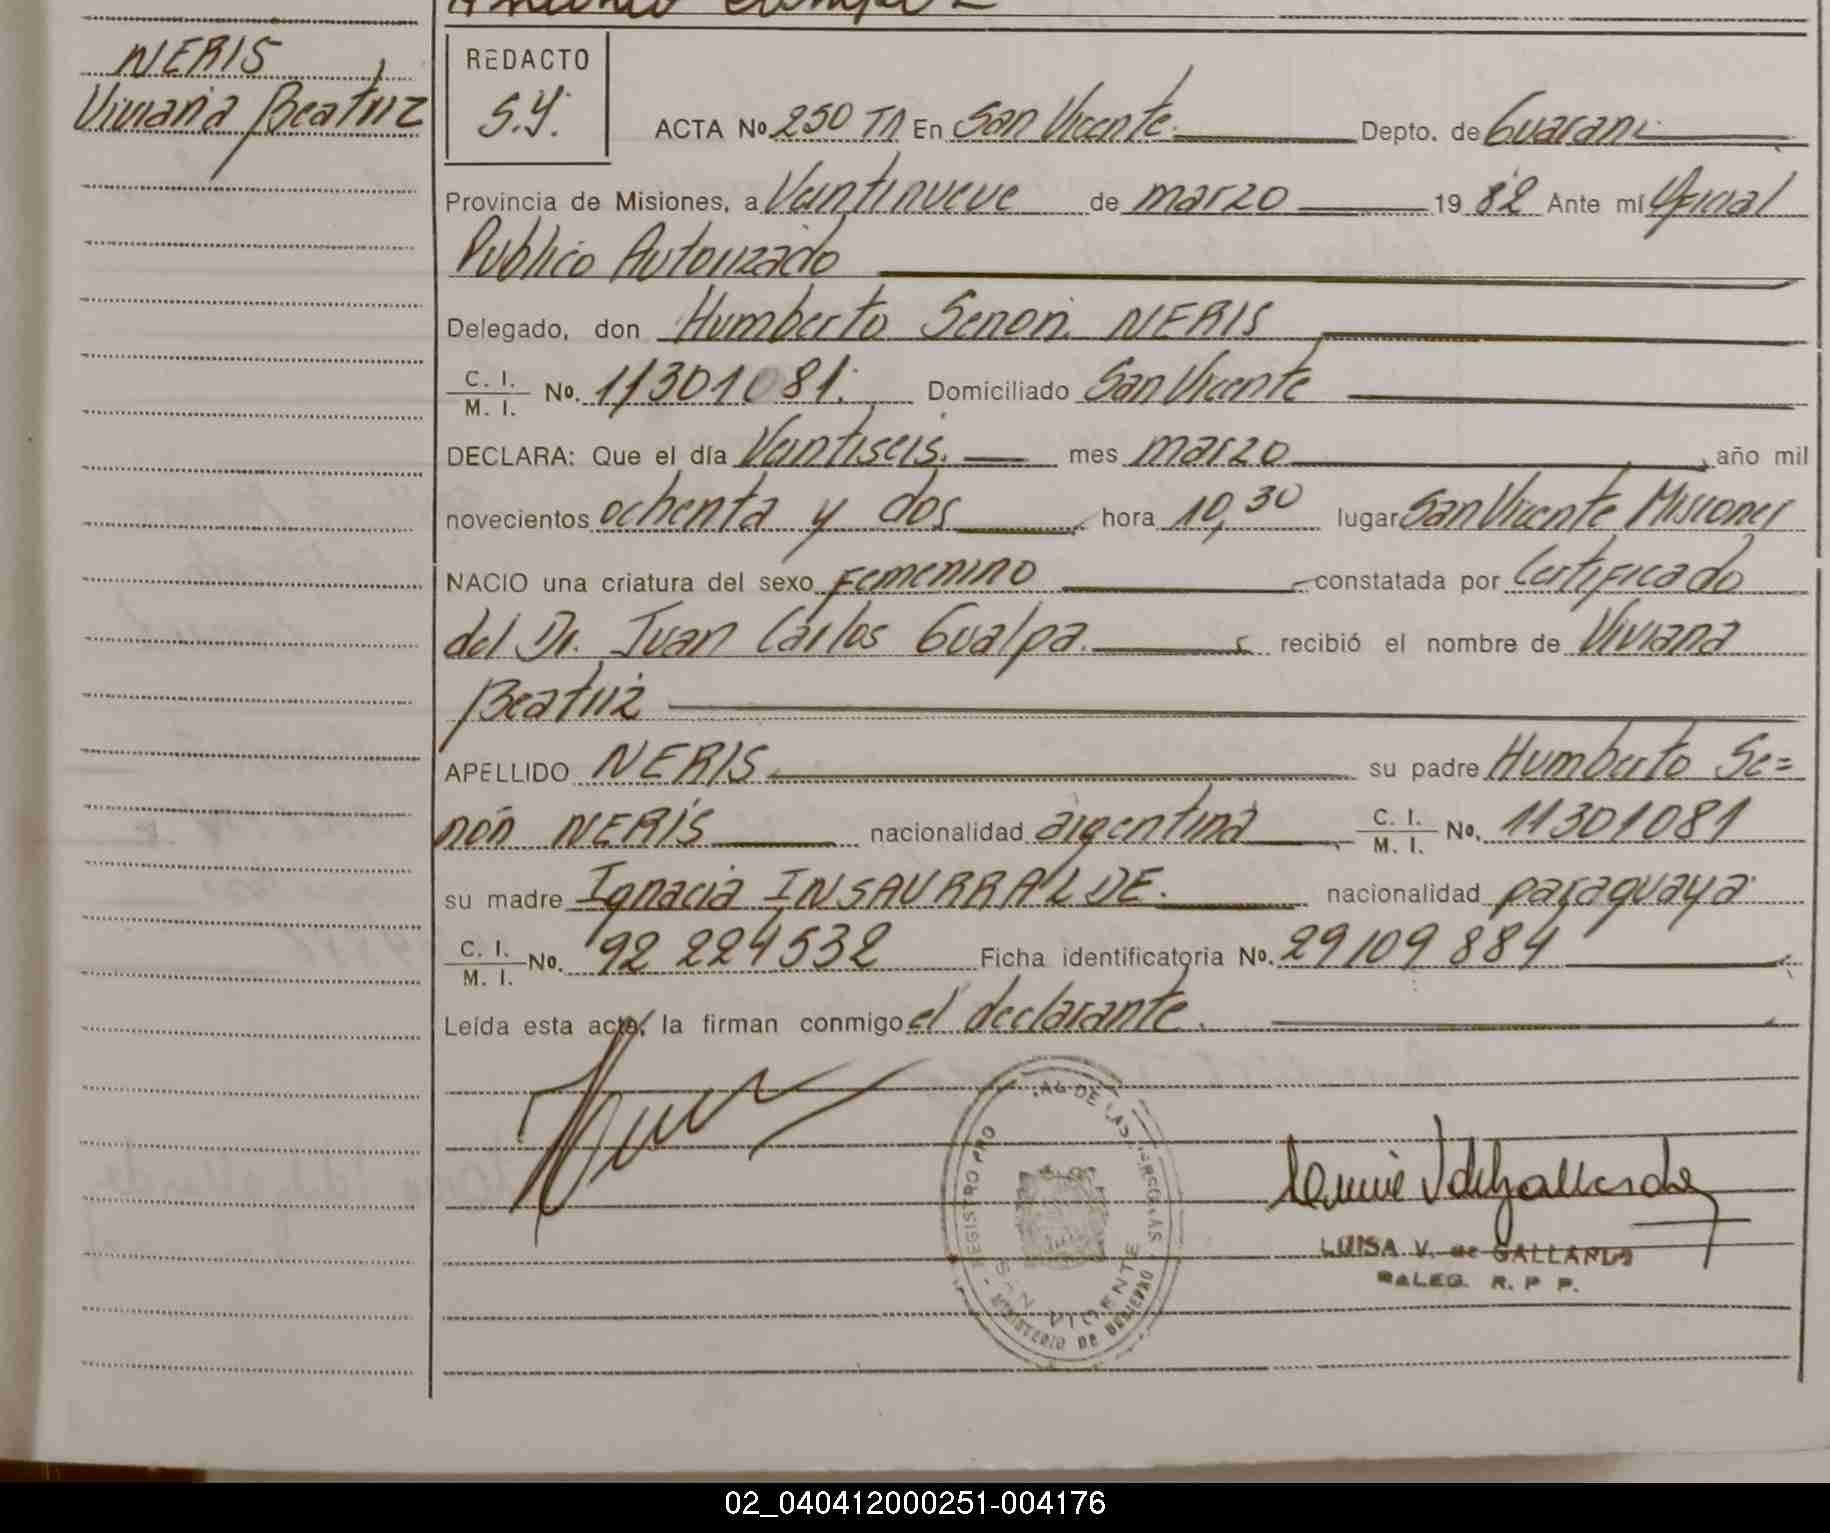 NERIS
Viviana Beatriz
REDACTO
S.Y.
ACTA No 250 TA En San Vicente Depto. de Guarani
Provincia de Misiones, a Veintinueve de marzo 19 82 Ante mí Oficial
Publico Autorizado
Delegado, don Humberto Senon NERIS
C. I.
M. I. No. 11301081. Domiciliado San Vicente
DECLARA: Que el día Veintiseis. mes marzo, año mil
novecientos ochenta y dos hora 10,30 lugar San Vicente Misiones
NACIO una criatura del sexo Femenino constatada por Certificado
del Dr. Juan Carlos Gualpa. recibió el nombre de Viviana
Beatriz
APELLIDO NERIS su padre Humberto Se=
nón NERIS nacionalidad argentina C. I.
M. I. No. 11301081
su madre Ignacia INSAURRALDE. nacionalidad paraguaya
C. I.
M. I. No. 92 224532 Ficha identificatoria No. 29109884
Leída esta acta, la firman conmigo el declarante.
REGISTRO PRO AL DE LAS PERSONAS
SAN VICENTE
MINISTERIO DE GOBIERNO
LUISA V. de GALLARDO
DALEG. R. P P.
02_040412000251-004176